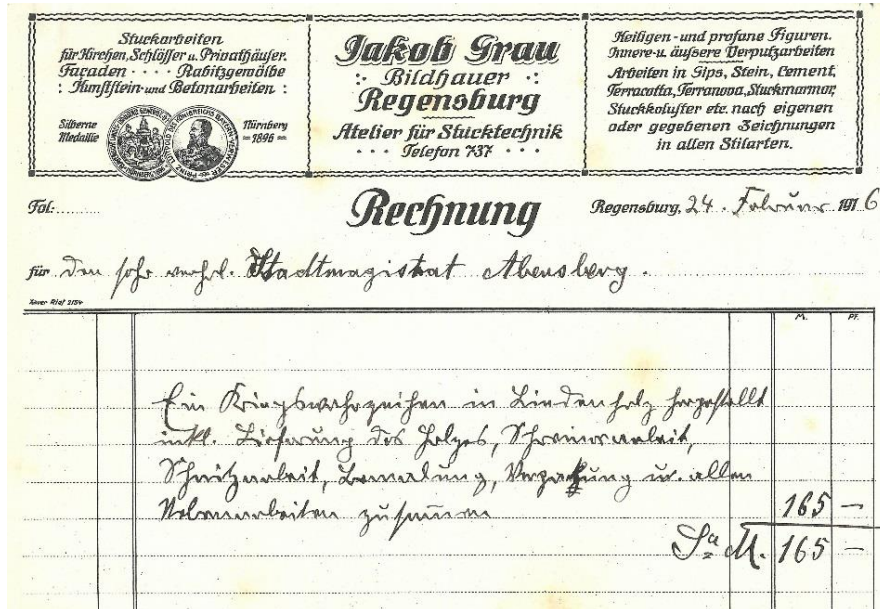 Stuckarbeiten
für Kirchen, Schlösser u. Privathäuser.
Façaden · · · · Rabitzgewölbe
: Kunststein- und Betonarbeiten :
Silberne
Medaille
Nürnberg
= 1896 =
Jakob Grau
·: Bildhauer ·:
Regensburg
Atelier für Stucktechnik
· · · Telefon 737 · · ·
Heiligen- und profane Figuren.
Innere- u. äufsere Verputzarbeiten
Arbeiten in Gips, Stein, Cement,
Terracotta, Terranova, Stuckmarmor,
Stuckkoluster etc. nach eigenen
oder gegebenen Zeichnungen
in allen Stilarten.
Fol:
Rechnung
Regensburg, 24. Februar 1916
für den sehr verehrl. Stadtmagistrat Abensberg.
Xaver Rief 2154
M. Pf.
Ein Kriegswahrzeichen in Lindenholz hergestellt
inkl. Lieferung des Holzes, Schreinerarbeit,
Schnitzarbeit, Bemalung, Verpackung u. allen
Nebenarbeiten zusammen 165 —
Sa M. 165 —